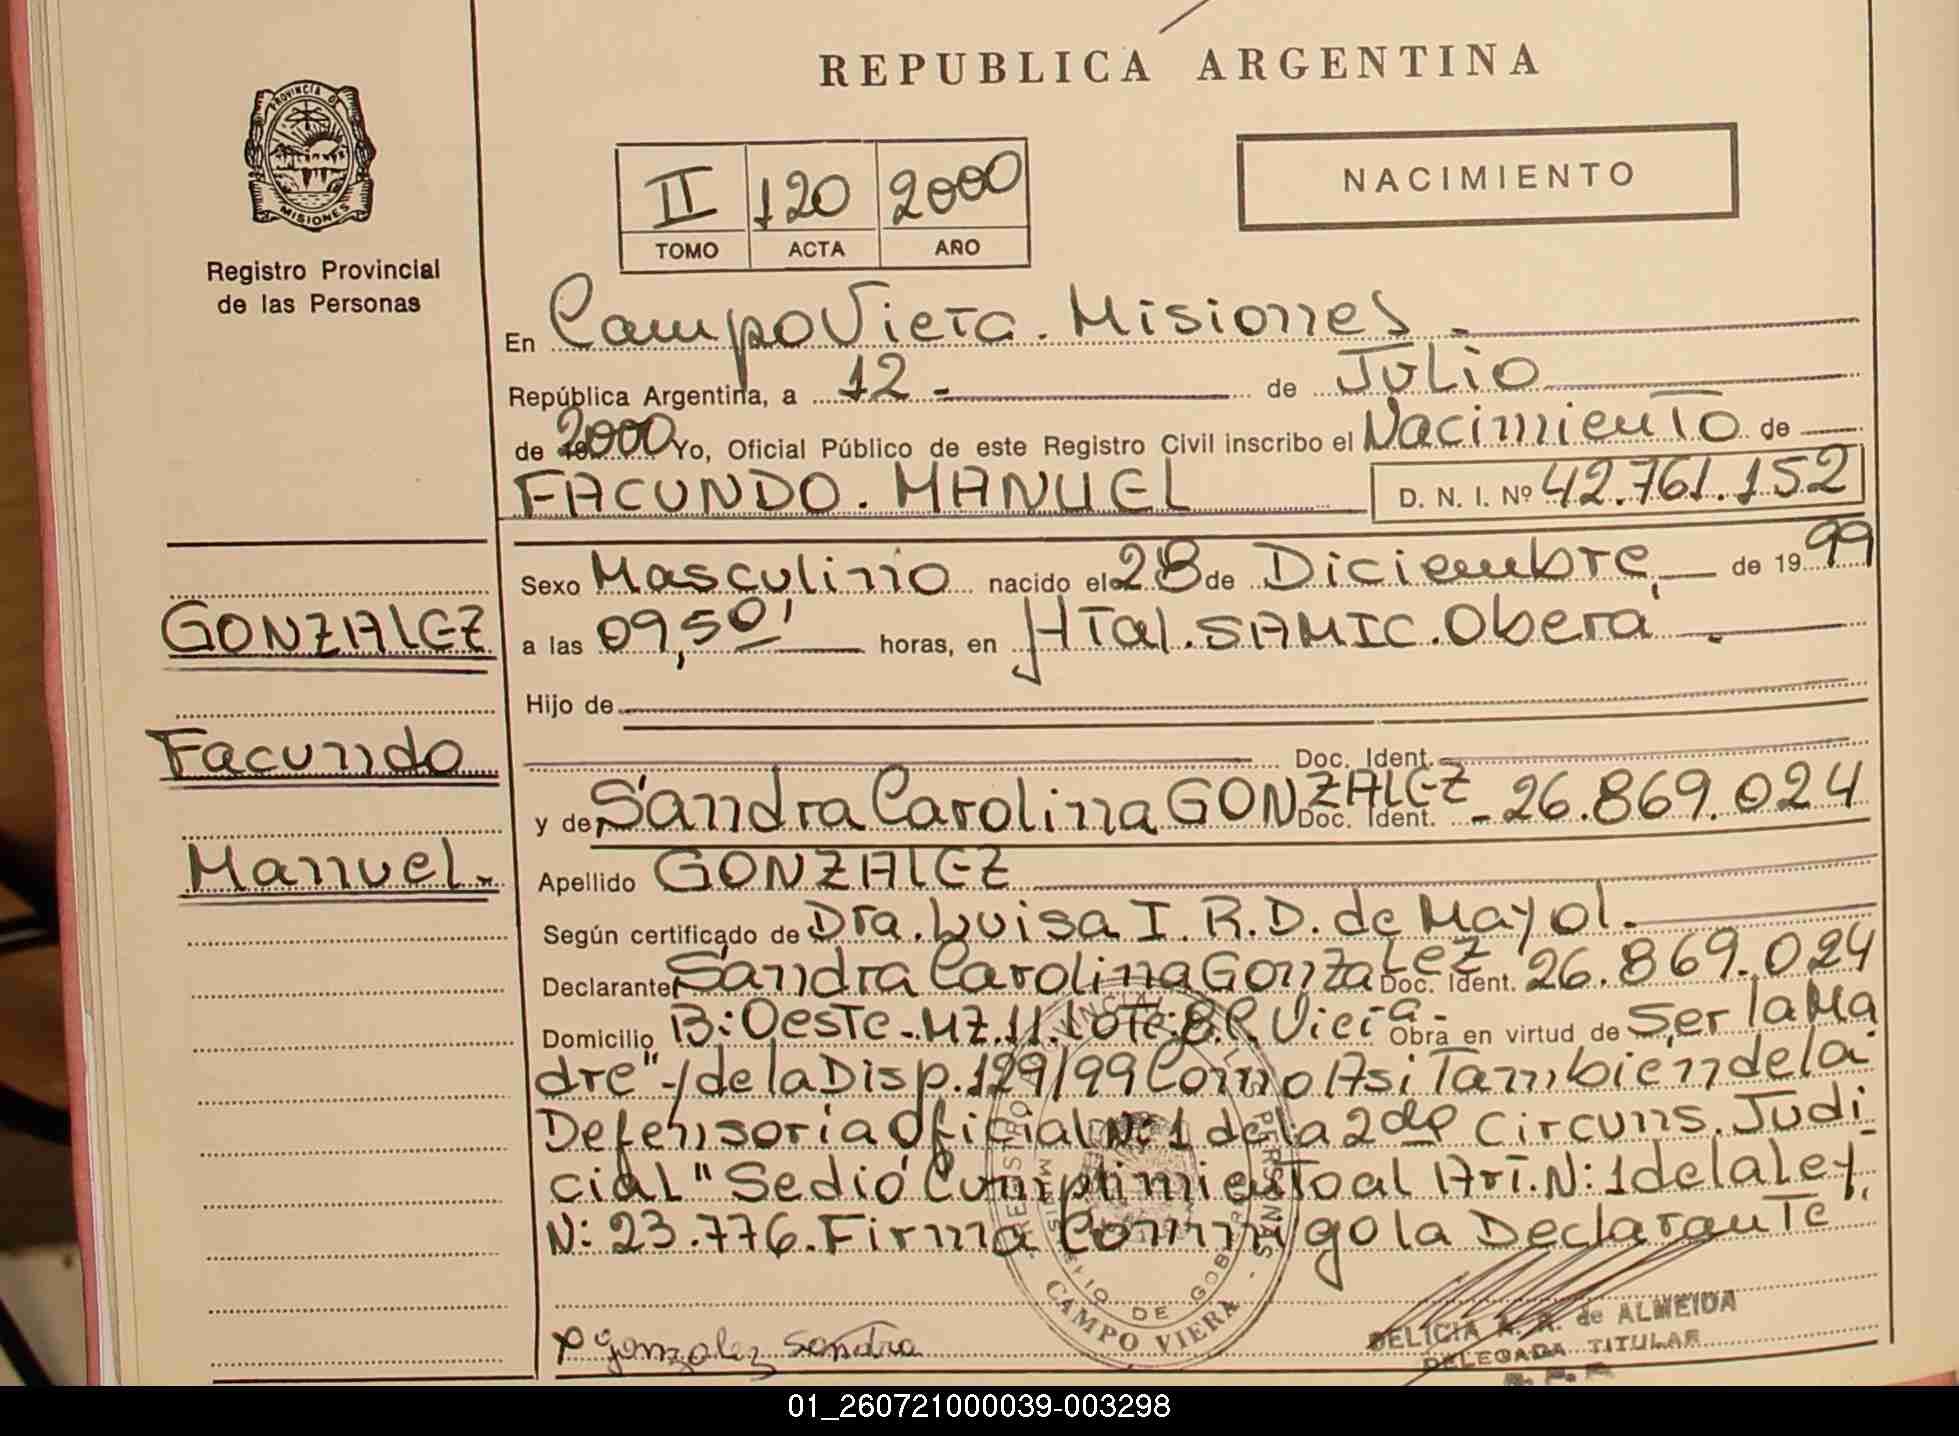 REPUBLICA ARGENTINA
PROVINCIA DE
MISIONES
Registro Provincial
de las Personas
II 120 2000
TOMO ACTA AÑO
NACIMIENTO
En Campo Viera. Misiones -
República Argentina, a 12 - de Julio
de 2000 Yo, Oficial Público de este Registro Civil inscribo el Nacimiento de
FACUNDO. MANUEL D. N. I. Nº 42.761.152
Sexo Masculino nacido el 28 de Diciembre de 1999
GONZALEZ
a las 09,50' horas, en Htal. SAMIC. Oberá
Hijo de
Facundo
Doc. Ident.
y de Sandra Carolina GONZALEZ Doc. Ident. - 26.869.024
Manuel.
Apellido GONZALEZ
Según certificado de Dra. Luisa I. R. D. de Mayol.
Declarante Sandra Carolina Gonzalez Doc. Ident. 26.869.024
Domicilio B: Oeste - MZ. 11. Lote: 8. C. Viera - Obra en virtud de Ser la Ma
dre"-/de la Disp. 129/99 Como Asi Tambien de la
Defensoria Oficial N: 1 de la 2da Circuns. Judi
cial" Se dió Cumplimiento al Art. N: 1 de la Ley
N: 23.776. Firma Conmigo la Declarante
REGISTRO PROVINCIAL DE LAS PERSONAS
MINISTERIO DE GOBIERNO
CAMPO VIERA
Gonzalez Sandra
DELICIA A. A. de ALMEIDA
DELEGADA TITULAR
01_260721000039-003298